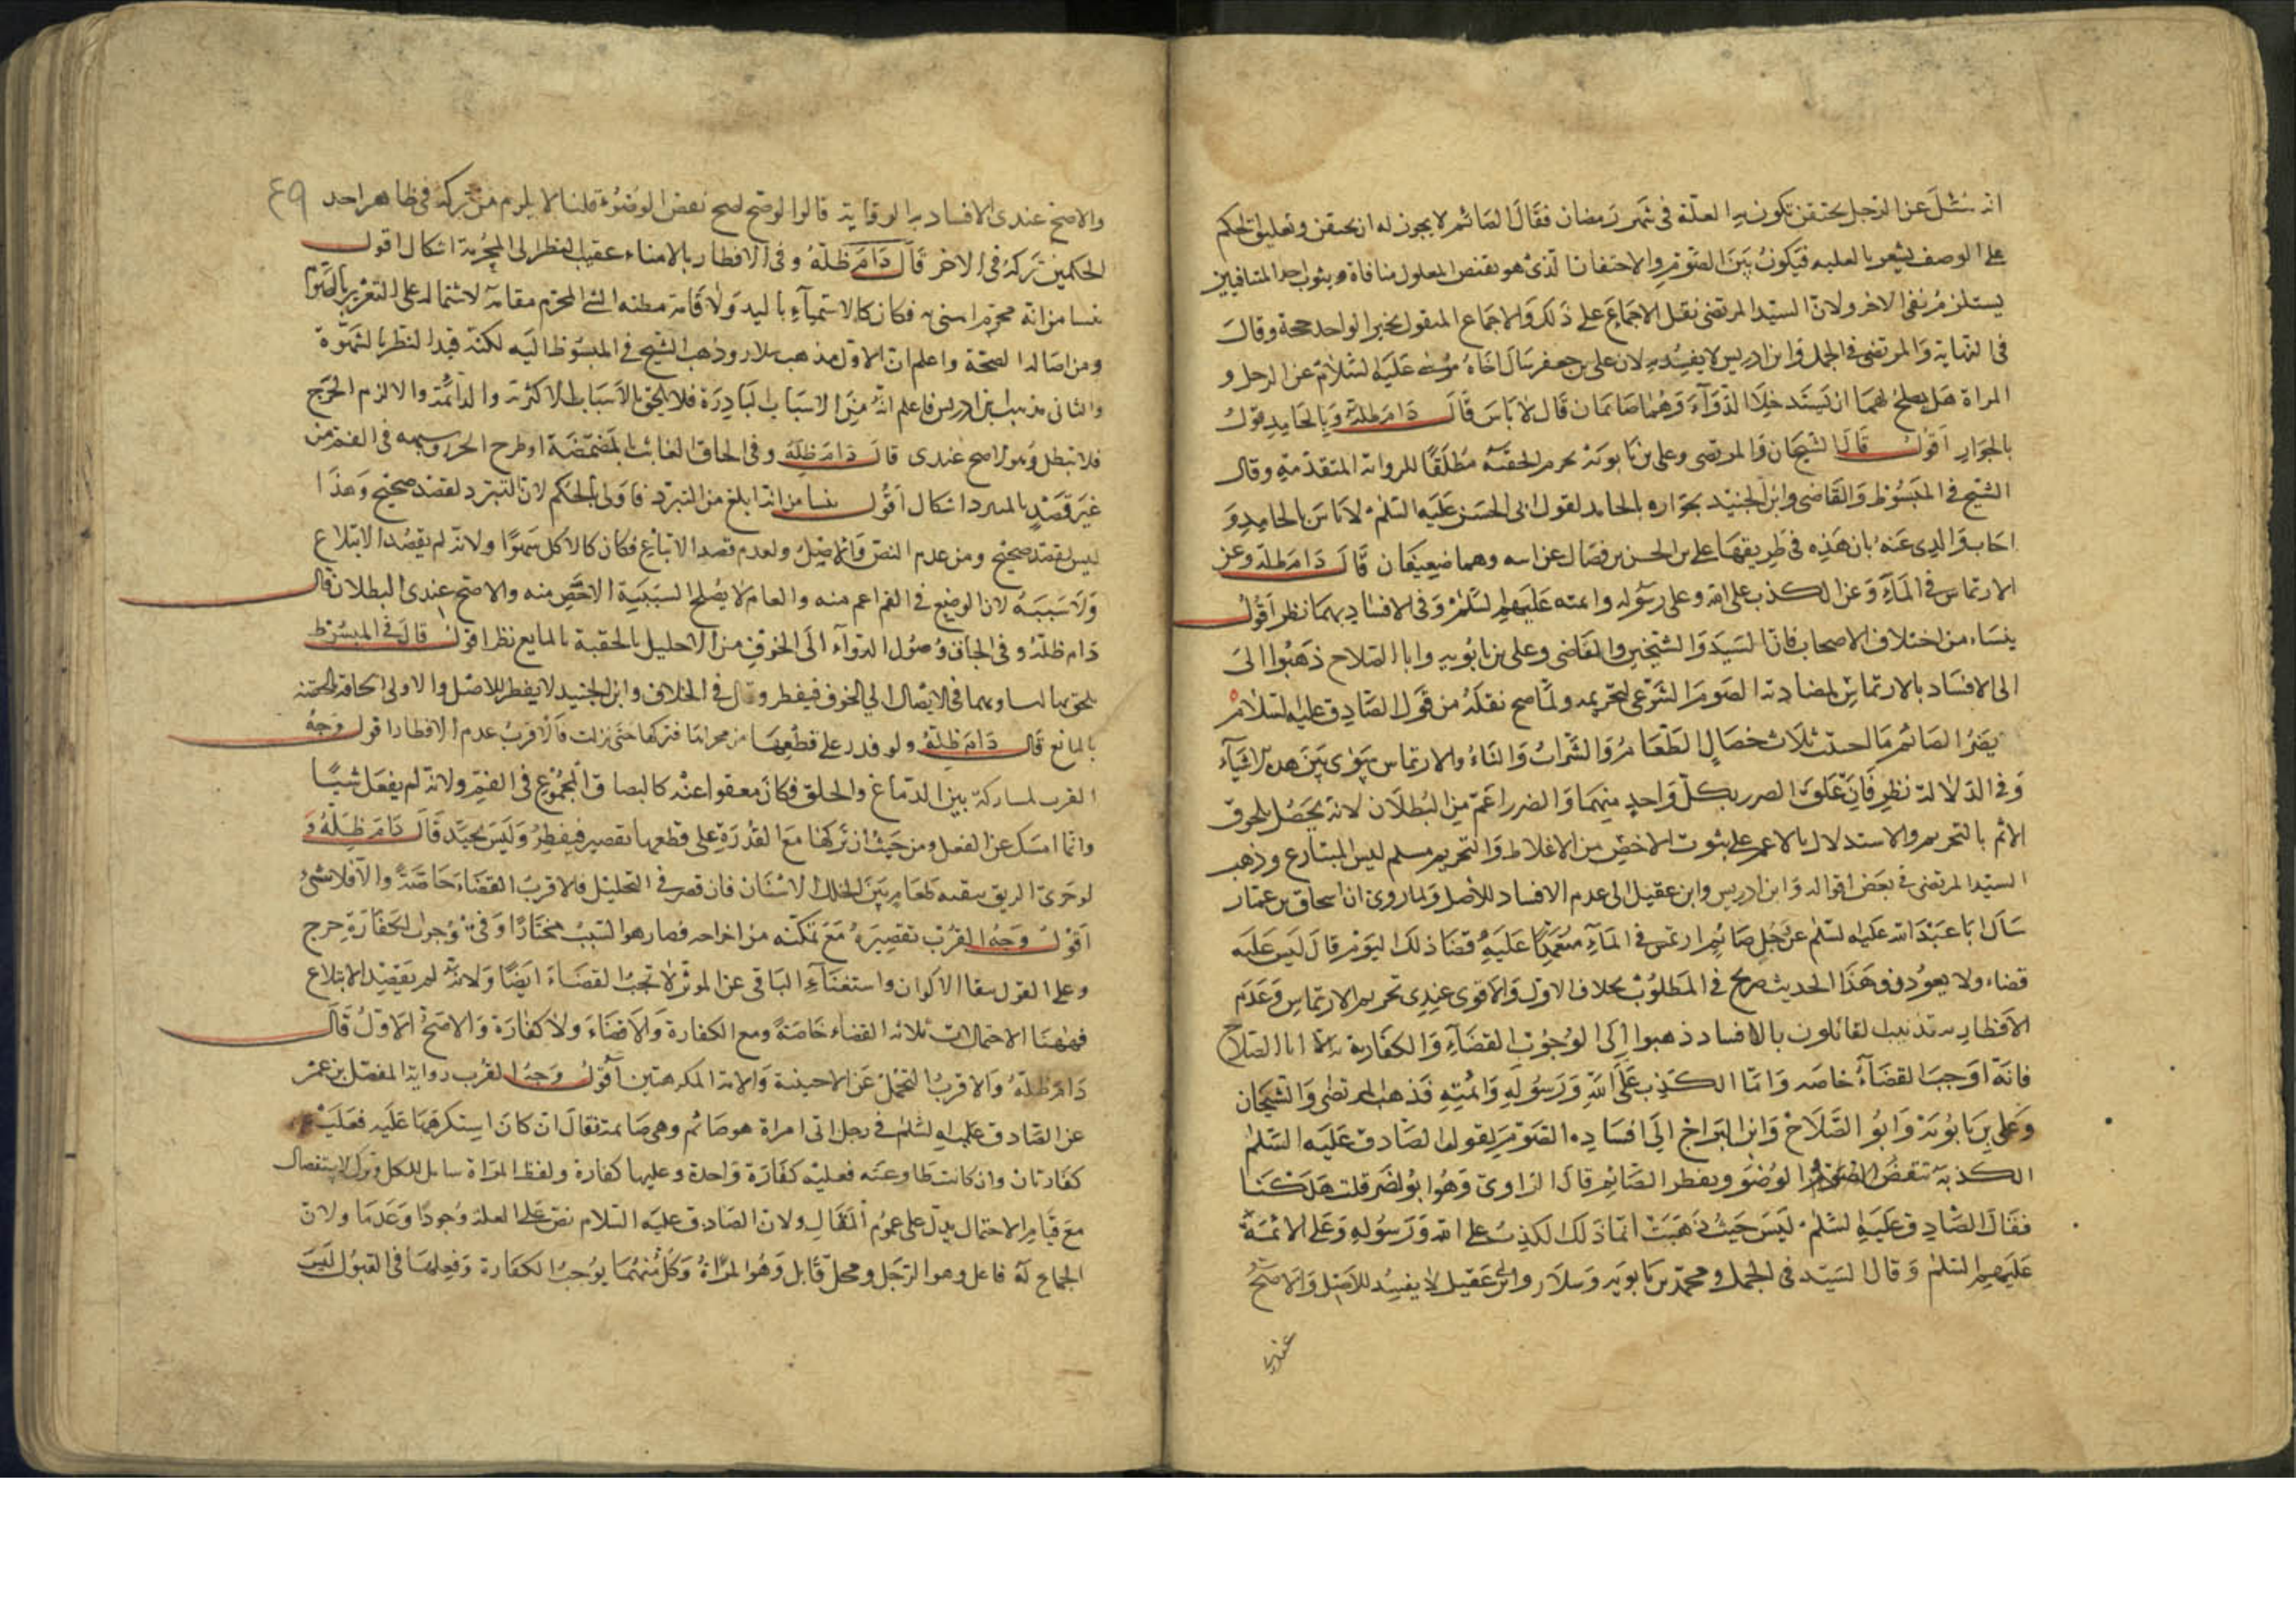 انه سئل عن الرجل يحتقن تكون به العلة في شهر رمضان فقال الصائم لا يجوز له ان يحتقن وتعليق الحكم
على الوصف يشعر بالعليه فيكون بين الصوم والاحتقان الذي هو نقيض المعلول منافاة وثبوت احد المتنافيين
يستلزم نفي الاخر ولان السيد المرتضى نقل الاجماع على ذلك والاجماع المنقول بخبر الواحد حجة وقال
في النهاية والمرتضى في الجمل وابن ادريس لا يفسد به لان علي بن جعفر سال اخاه موسى عليه السلام عن الرجل و
المراة هل يصلح لهما ان يستدخلا الدواء وهما صائمان قال لا باس قال دام ظله وبالجامد قول
بالجواز اقول قال الشيخان والمرتضى وعلي بن بابويه يحرم الحقنه مطلقا للرواية المتقدمة وقال
الشيخ في المبسوط والقاضي وابن الجنيد بجوازه بالجامد لقول ابي الحسن عليه السلم لا باس بالجامد و
اجاب والدي عنه بان هذه في طريقها علي بن الحسن بن فضال عن ابيه وهما ضعيفان قال دام ظله وعن
الارتماس في الماء وعن الكذب على الله وعلى رسوله وائمته عليهم السلم وفي الافساد بهما نظر اقول
ينشاء من اختلاف الاصحاب فان السيد والشيخين والقاضي وعلي بن بابويه وابا الصلاح ذهبوا الى
الى الافساد بالارتماس لمضادته الصوم الشرعي لتحريمه ولما صح نقله من قول الصادق عليه السلام
يضر الصائم ما اجتنب ثلاث خصال الطعام والشراب والنساء والارتماس سوى بين هذه الاشياء
وفي الدلالة نظر فان علق الضرر بكل واحد منهما والضرر اعم من البطلان لانه يحصل بلحوق
الاثم بالتحريم والاستدلال بالاعم على ثبوت الاخص من الاغلاط والتحريم مسلم ليس المتنازع وذهب
السيد المرتضى في بعض اقواله وابن ادريس وابن عقيل الى عدم الافساد للاصل ولما روي ان اسحاق بن عمار
سال ابا عبد الله عليه السلم عن رجل صائم ارتمس في الماء متعمدا عليه قضا ذلك اليوم قال ليس عليه
قضاء ولا يعودن وهذا الحديث صريح في المطلوب بخلاف الاول والاقوى عندي تحريم الارتماس وعدم
الافطار به تذنيب القائلون بالافساد ذهبوا الى الوجوب القضاء والكفارة الا ابا الصلاح
فانه اوجب القضاء خاصه واما الكذب على الله ورسوله وائمته فذهب المرتضى والشيخان
وعلي بن بابويه وابو الصلاح وابن البراج الى افساده الصوم لقول الصادق عليه السلم
الكذبة تنقض الوضو ويفطر الصائم قال الراوي وهو ابو بصير قلت هلكنا
فقال الصادق عليه السلم ليس حيث ذهبت انما ذلك الكذب على الله ورسوله وعلى الائمة
عليهم السلم وقال السيد في الجمل ومحمد بن بابويه وسلار وابن ابي عقيل لا يفسد للاصل والاصح
عندي
٤٩
والاصح عندي الافساد به الرواية قالوا لو صح لصح نقض الوضوء قلنا لا يلزم من تركه في ظاهر احد
الحكمين تركه في الاخر قال دام ظله وفي الافطار بالامناء عقيب النظر الى المحرمة اشكال اقول
ينشا من انه محرم فكان كالاستمناء باليد ولاقامة مظنه الشئ المحرم مقامه لاشتماله على التغرير بالصوم
ومن اصالة الصحة واعلم ان الاول مذهب سلار وذهب الشيخ في المبسوط اليه لكنه قيد النظر بالشهوة
والثاني مذهب ابن ادريس فاعلم انه من الاسباب النادرة فلا يلحق بالاسباب الاكثرية والدائمة والا لزم الحرج
فلا تبطل وهو الاصح عندي قال دام ظله وفي الحاق العابث بالمضمضة او طرح الخرز وشبهه في الفم من
غير قصد بالمتبرد اشكال اقول ينشا من انه ابلغ من التبرد فاولى بالحكم لان التبرد لقصد صحيح وهذا
ليس لقصد صحيح ومن عدم النص والاصل ولعدم قصد الابتلاع فكان كالاكل سهوا ولانه لم يقصد الابتلاع
ولا سببه لان الوضع في الفم اعم منه والعام لا يصلح لسببية الاخص منه والاصح عندي البطلان قال
دام ظله وفي الحاق وصول الدواء الى الجوف من الاحليل بالحقنة بالمايع نظر اقول قال في المبسوط
يلحق بها لتساويهما في الايصال الى الجوف فيفطر وقال في الخلاف وابن الجنيد لا يفطر للاصل والاولى الحاقه بالحقنه
بالمايع قال دام ظله ولو قدر على قطعها من مجراها فتركها حتى نزلت فالاقرب عدم الافطار اقول وجه
القرب لمشاركة بين الدماغ والحلق فكان معفوا عنه كالبصاق المجموع في الفم ولانه لم يفعل شيئا
وانما امسك عن الفعل ومن حيث ان تركها مع القدرة على قطعها تقصير فيفطر وليس بجيد قال دام ظله و
لو جرى الريق ببقيه طعام بين خلل الاسنان فان قصر في التخليل فالاقرب القضاء خاصة والا فلا شئ
اقول وجه القرب تقصيره مع تمكنه من اخراجه فصار هو السبب مختارا وفي وجوب الكفارة حرج
وعلى القول ببقاء الاكوان واستغناء الباقي عن المؤثر لا تجب القضاء ايضا ولانه لم يقصد الابتلاع
فههنا الاحتمالات ثلاثه القضاء خاصة ومع الكفارة والاقضاء ولا كفارة والاصح الاول قال
دام ظله والاقرب التحمل عن الاجنبية والامة المكرهتين اقول وجه القرب رواية المفضل بن عمر
عن الصادق عليه السلم في رجل اتى امراة هو صائم وهي صائمة فقال ان كان استكرهها عليه فعليه
كفارتان وان كانت طاوعته فعليه كفارة واحدة وعليها كفارة ولفظ المراة شامل للكل وترك الاستفصال
مع قيام الاحتمال يدل على عموم المقال ولان الصادق عليه السلام نص على العلة وجودا وعدما ولان
الجماع له فاعل وهو الرجل ومحل قابل وهو المراة وكل منهما يوجب الكفارة وفعلها في القبول ليس